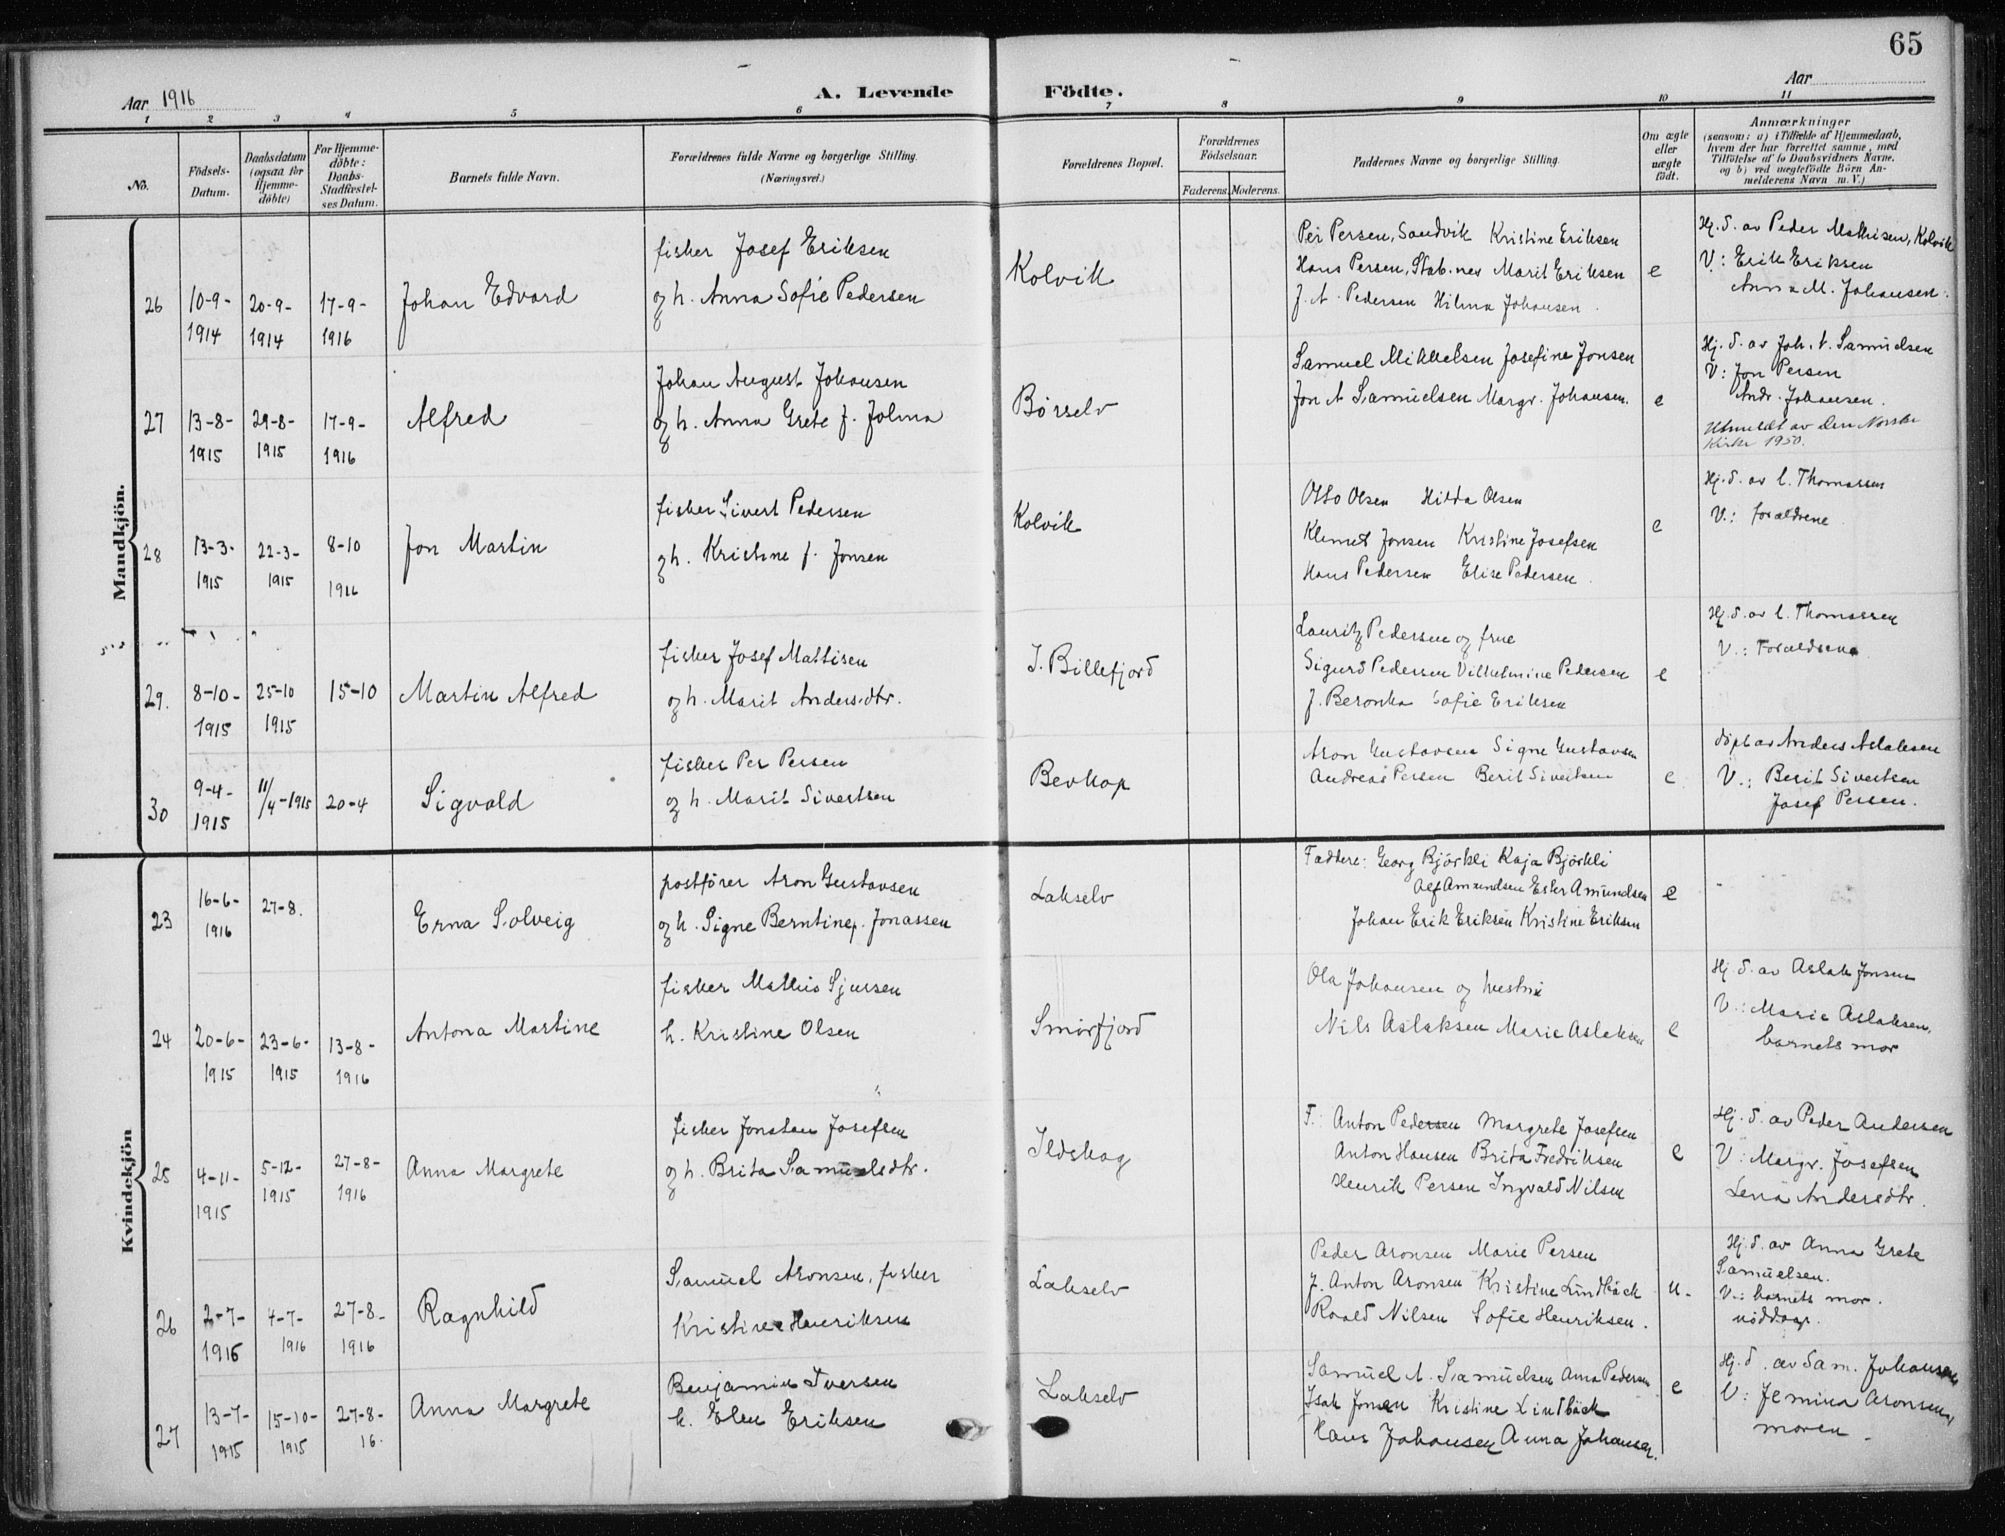 65
Aar 1916
A. Levende
Födte.
Aar
1 2 3 4 5 6 7 8 9 10 11
No.
Födsels-
Datum.
Daabsdatum
(ogsaa for
Hjemme-
döbte)
For Hjemme-
döbte:
Daabs-
Stadfæstel-
ses Datum.
Barnets fulde Navn.
Forældrenes fulde Navne og borgerlige Stilling.
(Næringsvei.)
Forældrenes Bopæl.
Forældrenes
Födselsaar.
Faderens. Moderens.
Faddernes Navne og borgerlige Stilling.
Om ægte
eller
uægte
födt.
Anmærkninger
(saasom: a) i Tilfælde af Hjemmedaab,
hvem der har forrettet samme, med
Tilföielse af to Daabsvidners Navne.
og b) ved uægtefödte Börn An-
melderens Navn m. V.)
Mandkjön.
26
10-9-
1914
20-9-
1914
17-9-
1916
Johan Edvard
fisker Josef Eriksen
og h. Anna Sofie Pedersen
Kolvik
Per Persen, Sandvik Kristine Eriksen
Hans Persen, Stab.nes Marit Eriksen
J. A. Pedersen Hilma Johansen
e
Hj. d. av Peder Mathisen, Kolvik
V: Erik Eriksen
Anna M. Johansen.
27
13-8-
1915
29-8-
1915
17-9-
1916
Alfred
Johan August Johansen
og h. Anna Grete f. Jolma
Börselv
Samuel Mikkelsen Josefine Jonsen
Jon A Samuelsen Margr. Johansen.
e
Hj. d. av Joh. A. Samuelsen
V: Jon Persen
Andr. Johansen.
Utmeldt av den Norske
Kirke 1950.
28
13-3-
1915
22-3-
1915
8-10
1916
Jon Martin
fisker Sivert Pedersen
og h. Kristine f. Jonsen
Kolvik
Otto Olsen Hilda Olsen
Klemet Jonsen Kristine Josefsen
Hans Pedersen Elise Pedersen.
e
Hj. d. av C. Thomassen
V.: forældrene
29.
8-10-
1915
25-10
1915
15-10
Martin Alfred
fisker Josef Mattisen
og h. Marit Andersdtr.
I. Billefjord
Lauritz Pedersen og frue
Sigurd Pedersen Vilhelmine Pedersen
J. Beronka Sofie Eriksen
e
Hj. d. av C. Thomassen
V.: Forældrene
30
9-4-
1915
11/4-1915
20-4
Sigvald
fisker Per Persen
og h. Marit Sivertsen
Bevkop
Aron Gustavsen Signe Gustavsen
Andreas Persen Berit Sivertsen
e
döpt av Anders Aslaksen
V.: Berit Sivertsen
Josef Persen.
Kvindekjön
23
16-6-
1916
27-8.
Erna Solveig
postförer Aron Gustavsen
og h. Signe Berntine f. Jonassen
Lakselv
Faddere: Georg Björkli Kaja Björkli
Alf Amundsen Ester Amundsen
Johan Erik Eriksen Kristine Eriksen
e
24
20-6-
1915
23-6-
1915
13-8-
1916
Antona Martine
fisker Mathis Sjursen
h. Kristine Olsen
Smörfjord
Ola Johansen og hustru
Nils Aslaksen Marie Aslaksen
e
Hj. d. av Aslak Jonsen
V.: Marie Aslaksen,
barnets mor
25
4-11-
1915
5-12-
1915
27-8-
1916
Anna Margrete
fisker Jonatan Josefsen
og h. Brita Samuelsdtr.
Ildskog
F. Anton Pedersen Margrete Josefsen
Anton Hansen Brita Fredriksen
Henrik Persen Ingvald Nilsen
e
Hj. d. av Peder Andersen
V: Margr. Josefsen
Lena Andersdtr.
26
2-7-
1916
4-7-
1916
27-8-
1916
Ragnhild
Samuel Aronsen, fisker
Kristine Henriksen
Lakselv
Peder Aronsen Marie Persen
J. Anton Aronsen Kristine Lindbäck
Roald Nilsen Sofie Henriksen.
u.
Hj. d. av Anna Grete
Samuelsen.
V.: barnets mor.
nöddaap.
27
13-7-
1915
15-10-
1915
27-8-
16.
Anna Margrete
Benjamin Iversen
h. Elen Eriksen
Lakselv
Samuel A. Samuelsen Anna Pedersen
Isak Jonsen Kristine Lindbäck
Hans Johansen Anna Johansen.
e
Hj. d. av Sam. Johansen
V: Jemina Aronsen,
moren